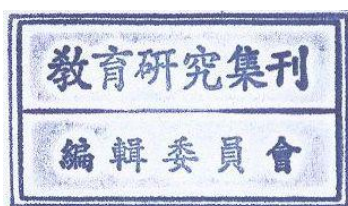 教育研究集刊
編輯委員會